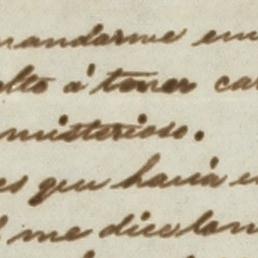 mandarme en
elto á tener car
misterioso.
es que hacia
me dice lan